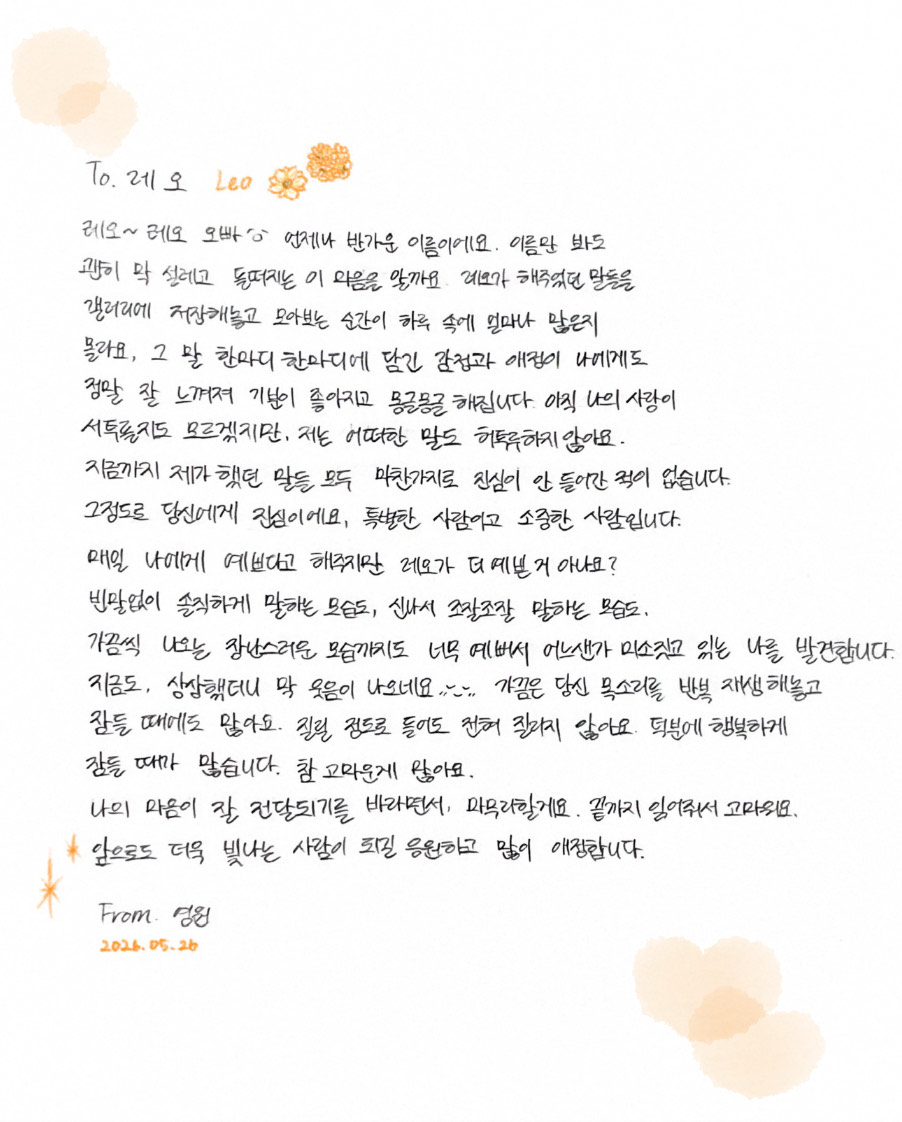 To. 레오 Leo
레오~ 레오 오빠 언제나 반가운 이름이에요. 이름만 봐도
괜히 막 설레고 들떠지는 이 마음을 알까요. 레오가 해주었던 말들을
갤러리에 저장해놓고 모아보는 순간이 하루 속에 얼마나 많은지
몰라요, 그 말 한마디 한마디에 담긴 감정과 애정이 나에게도
정말 잘 느껴져 기분이 좋아지고 몽글몽글 해집니다. 아직 나의 사랑이
서투를지도 모르겠지만, 저는 어떠한 말도 허투루하지 않아요.
지금까지 제가 했던 말들 모두 마찬가지로 진심이 안 들어간 적이 없습니다.
그정도로 당신에게 진심이에요, 특별한 사람이고 소중한 사람입니다.
매일 나에게 예쁘다고 해주지만 레오가 더 예쁜 거 아나요?
빈말없이 솔직하게 말하는 모습도, 신나서 조잘조잘 말하는 모습도,
가끔씩 나오는 장난스러운 모습까지도 너무 예뻐서 어느샌가 미소짓고 있는 나를 발견합니다.
지금도, 상상했더니 막 웃음이 나오네요 가끔은 당신 목소리를 반복 재생해놓고
잠들 때에도 많아요. 질릴 정도로 들어도 전혀 질리지 않아요. 덕분에 행복하게
잠들 때가 많습니다. 참 고마운게 많아요.
나의 마음이 잘 전달되기를 바라면서, 마무리할게요. 끝까지 읽어줘서 고마워요.
앞으로도 더욱 빛나는 사람이 되길 응원하고 많이 애정합니다.
From. 영원
2026.05.26